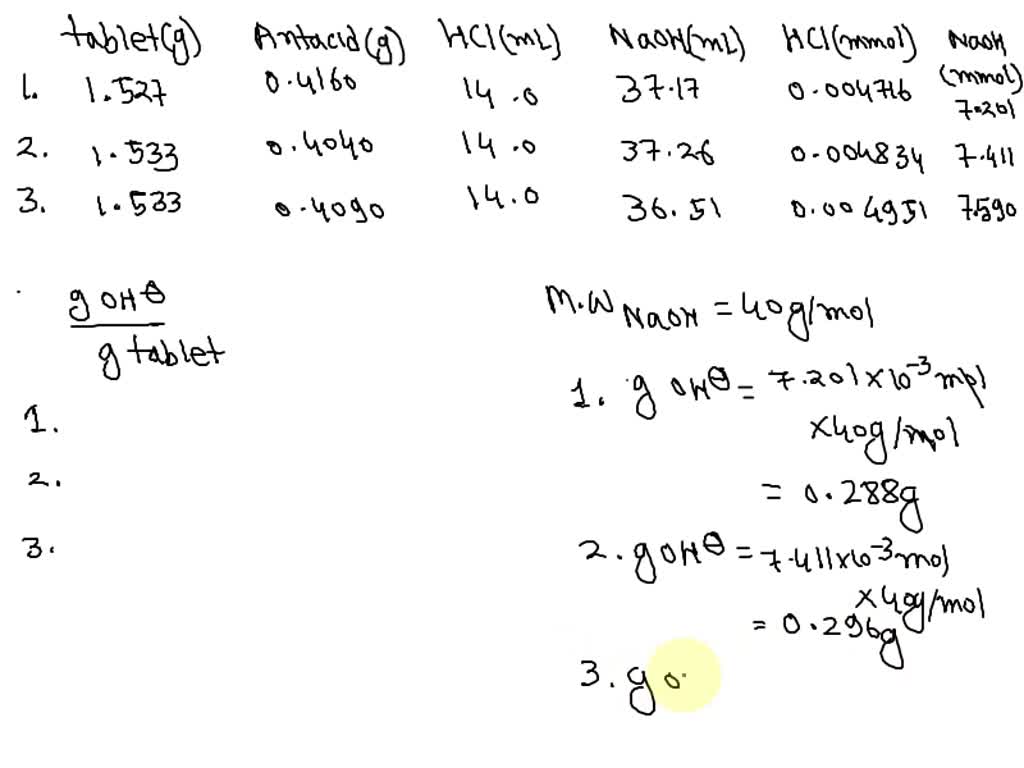 tablet(g) Antacid(g) HCl(mL) NaOH(mL) HCl(mmol) NaOH (mmol)
1. 1.527 0.4160 14.0 37.17 0.004716 7.201
2. 1.533 0.4040 14.0 37.26 0.004834 7.411
3. 1.533 0.4090 14.0 36.51 0.004951 7.590
g OH⊖
g tablet
1.
2.
3.
M.W NaOH = 40g/mol
1. g OH⊖ = 7.201×10⁻³ mol
×40g/mol
= 0.288g
2. g OH⊖ = 7.411×10⁻³ mol
×40g/mol
= 0.296g
3. g O